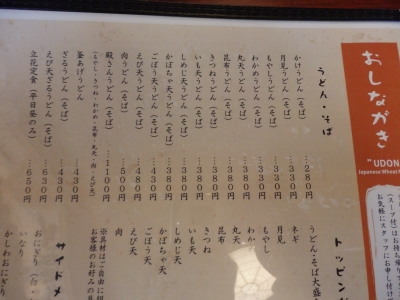 おしながき
"UDON
Japanese Wheat
(スープ付)はお持ち帰り
お気軽にスタッフにお申し付け
うどん・そば
かけうどん(そば)…280円
月見うどん(そば)…330円
もやしうどん(そば)…330円
わかめうどん(そば)…330円
丸天うどん(そば)…330円
昆布うどん(そば)…330円
きつねうどん(そば)…330円
いも天うどん(そば)…380円
しめじ天うどん(そば)…380円
かぼちゃ天うどん(そば)…380円
ごぼう天うどん(そば)…380円
えび天うどん(そば)…480円
肉うどん(そば)…500円
殿さんうどん(そば)…1100円
(もやし・きつね・わかめ・昆布・丸天・肉・えび天)
釜あげうどん…430円
ざるうどん(そば)…430円
えび天ざるうどん(そば)…630円
立花定食(平日昼のみ)…650円
トッピン
うどん・そば大盛
ネギ
月見
もやし
わかめ
丸天
昆布
きつね
いも天
しめじ天
かぼちゃ天
ごぼう天
えび天
肉
※具材はご自由に組
お客様のお好みの
サイドメ
おにぎり(白・
いなり
かしわおにぎり